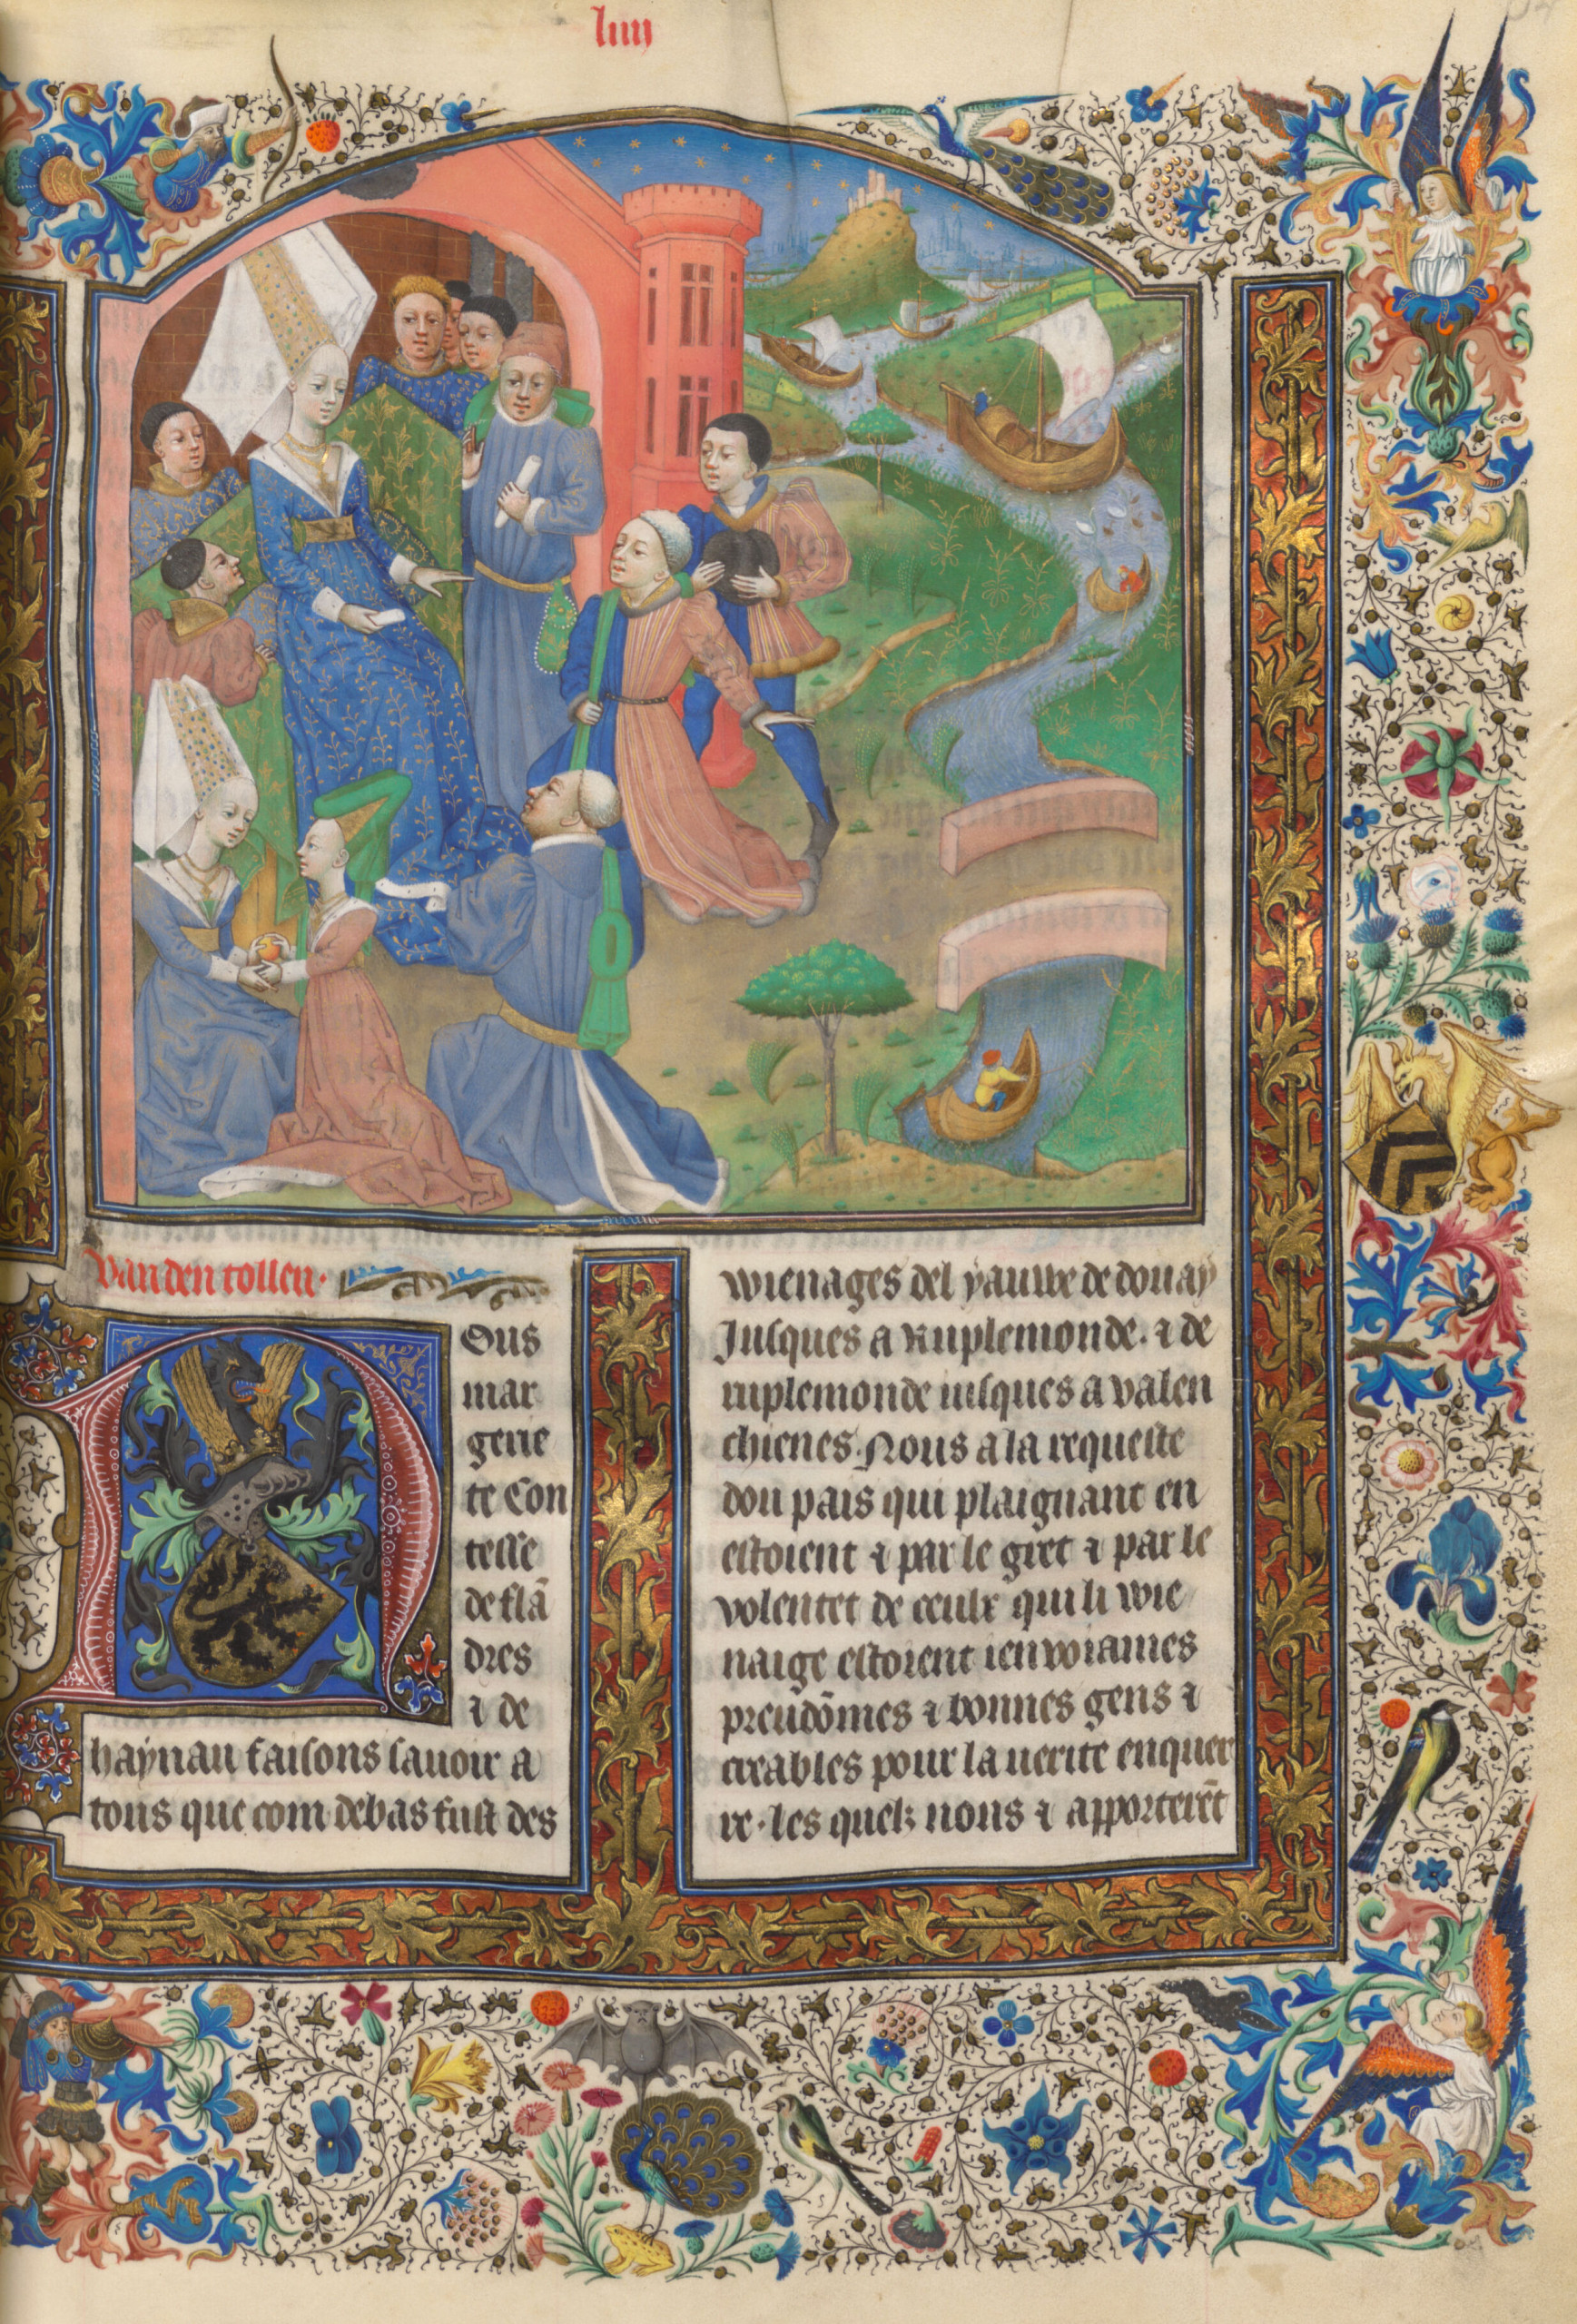 liiij
Van den tollen.
Nous
mar
gerie
te Con
tesse
de flā
dres
⁊ de
haynau faisons sauoir a
tous que com debas fust des
wienages del yauwe de douay
Jusques a Ruplemonde. ⁊ de
ruplemonde iusques a valen
chienes. Nous a la requeste
dou pais qui plaignant en
estoient ⁊ par le gret ⁊ par le
volentet de ceulx qui li wie
naige estoient ienvoiames
preudōmes ⁊ bonnes gens ⁊
creables pour la uerite enquer
re. les quelz nous ⁊ apporterēt